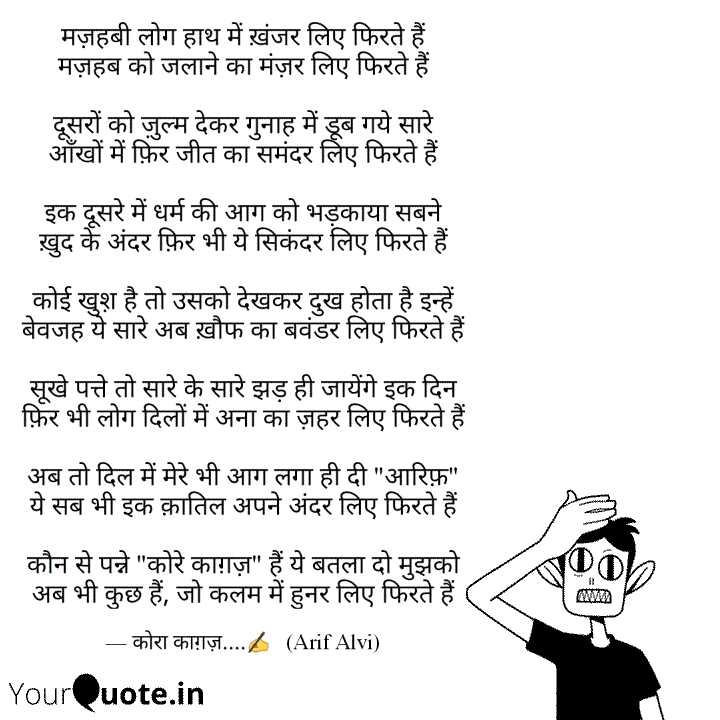 मज़हबी लोग हाथ में ख़ंजर लिए फिरते हैं
मज़हब को जलाने का मंज़र लिए फिरते हैं
दूसरों को ज़ुल्म देकर गुनाह में डूब गये सारे
आँखों में फ़िर जीत का समंदर लिए फिरते हैं
इक दूसरे में धर्म की आग को भड़काया सबने
ख़ुद के अंदर फ़िर भी ये सिकंदर लिए फिरते हैं
कोई खुश़ है तो उसको देखकर दुख होता है इन्हें
बेवजह ये सारे अब ख़ौफ का बवंडर लिए फिरते हैं
सूखे पत्ते तो सारे के सारे झड़ ही जायेंगे इक दिन
फ़िर भी लोग दिलों में अना का ज़हर लिए फिरते हैं
अब तो दिल में मेरे भी आग लगा ही दी "आरिफ़"
ये सब भी इक क़ातिल अपने अंदर लिए फिरते हैं
कौन से पन्ने "कोरे काग़ज़" हैं ये बतला दो मुझको
अब भी कुछ हैं, जो कलम में हुनर लिए फिरते हैं
— कोरा काग़ज़....✍️ (Arif Alvi)
YourQuote.in